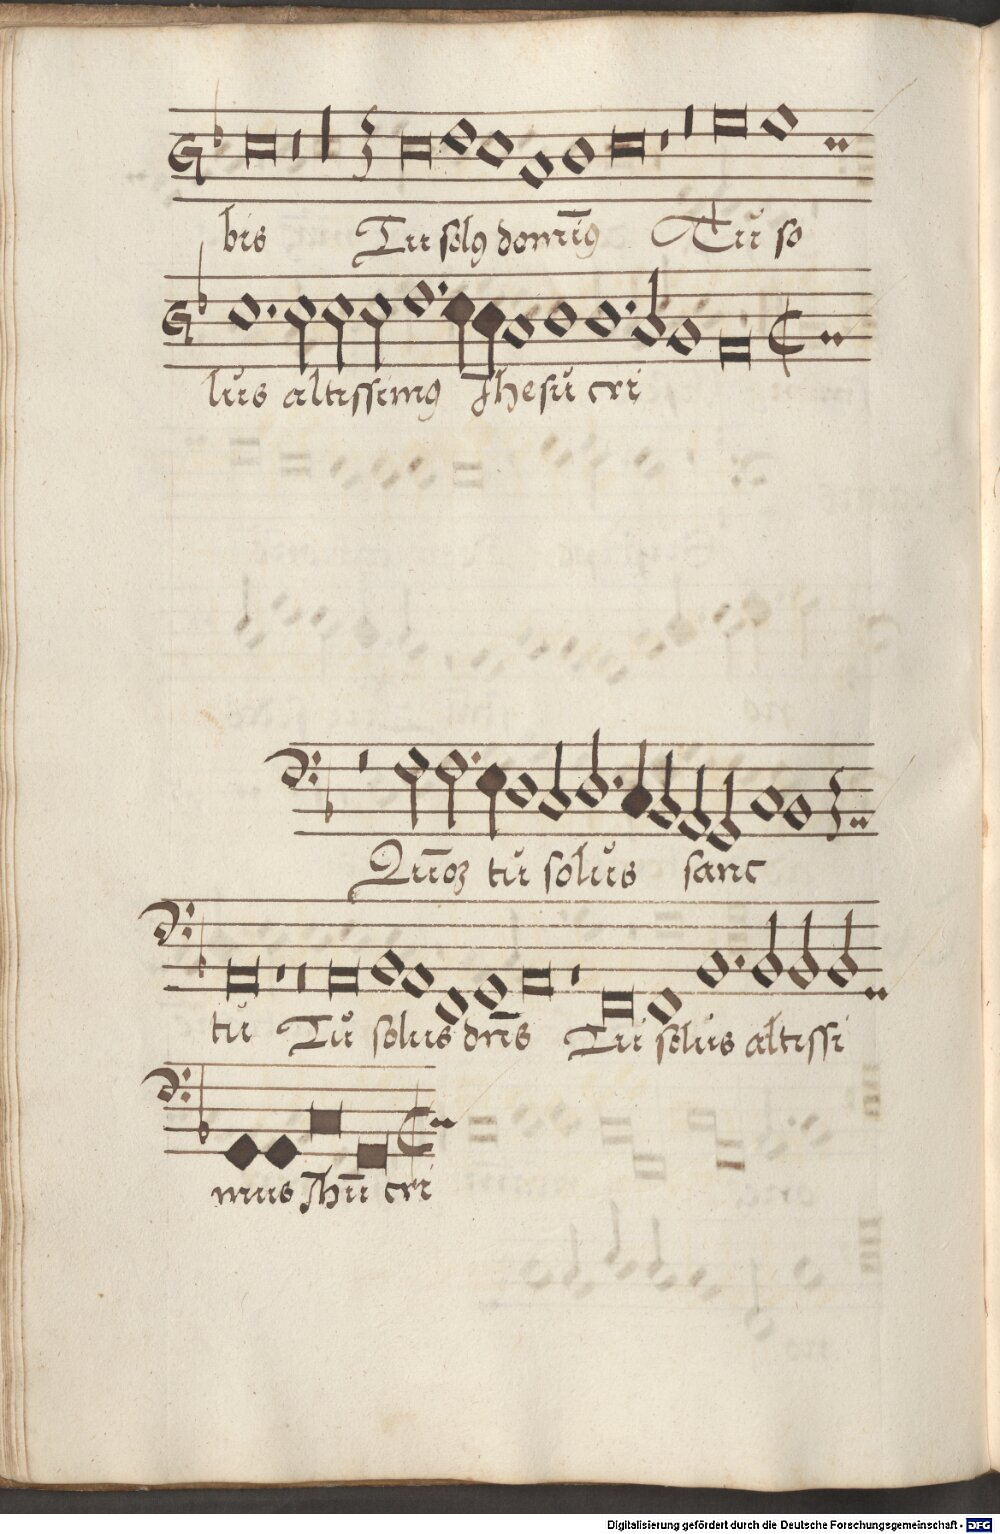 bis Tu solꝰ dominꝰ Tu so
lus altissimꝰ Jhesu cri
Qm̄oꝫ tu solus sanc
tu Tu solus dn̄s Tu solus altissi
mus Jhū cri
Digitalisierung gefördert durch die Deutsche Forschungsgemeinschaft - DFG